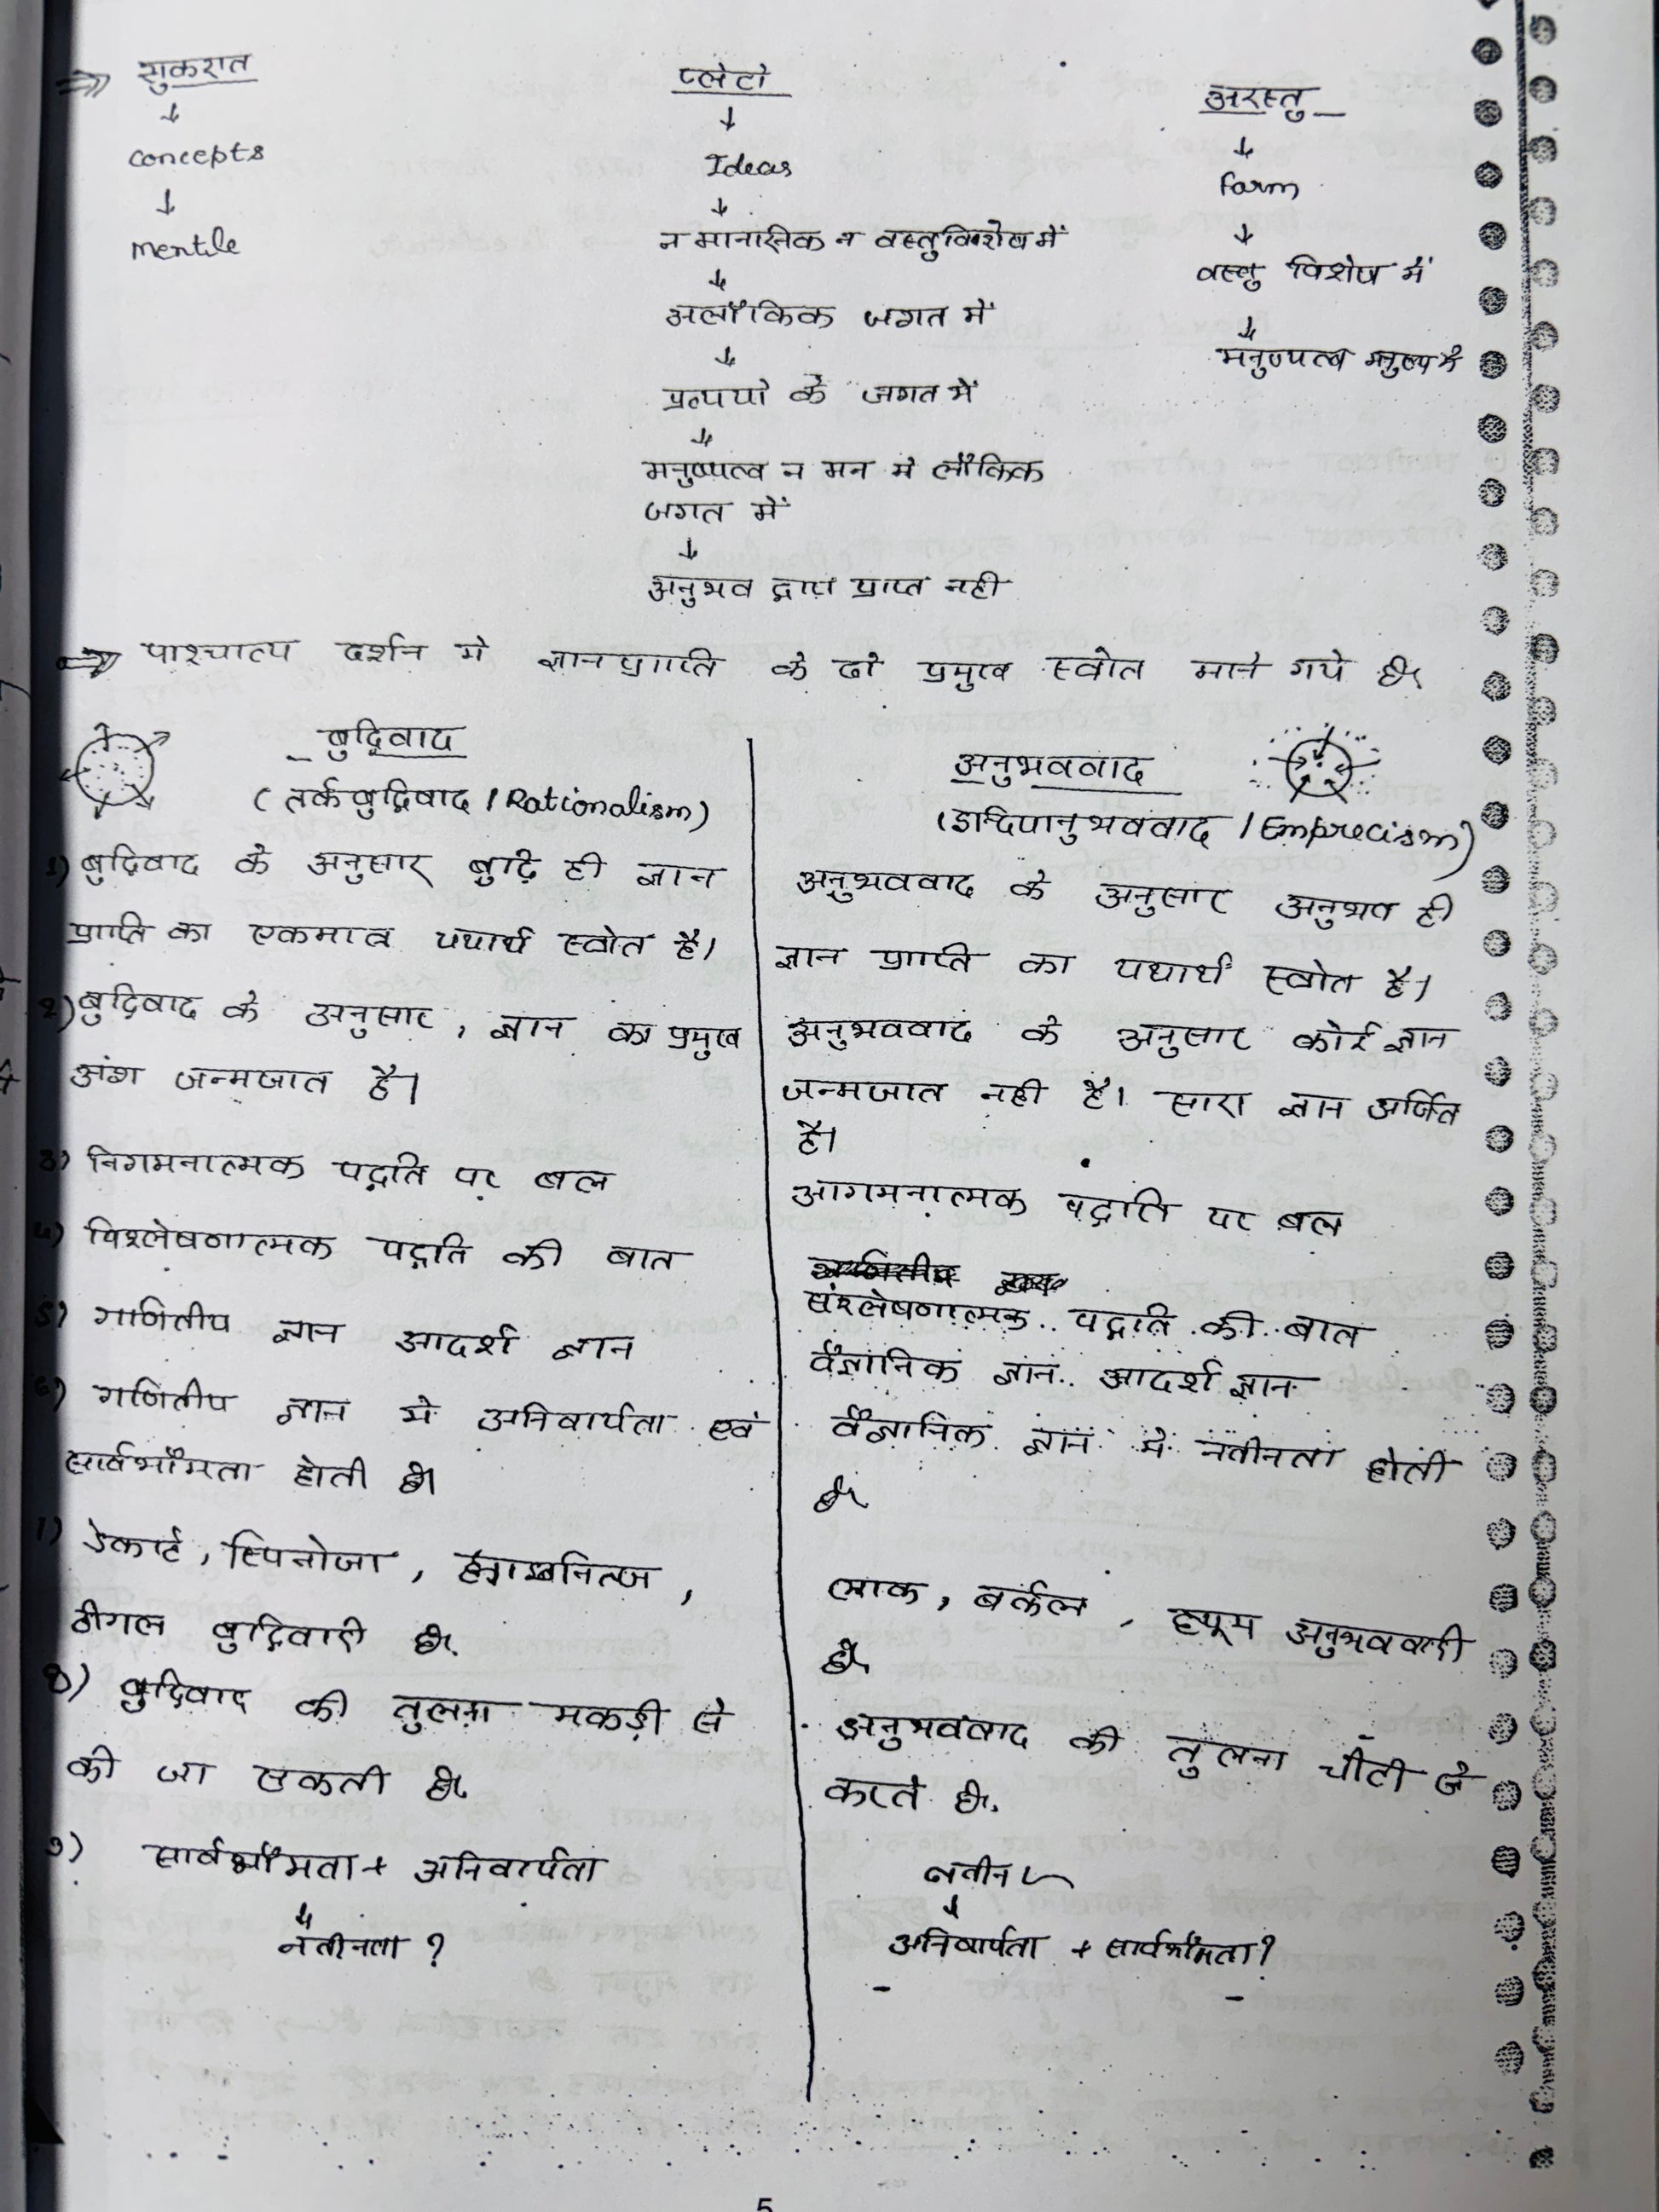 ⇒ सुकरात
↓
concepts
↓
mentile
प्लेटो
↓
Ideas
↓
न मानसिक न वस्तुविशेष में
↓
अलौकिक जगत में
↓
प्रत्ययो के जगत में
↓
मनुष्यत्व न मन मे लौकिक
जगत में
↓
अनुभव द्वारा प्राप्त नही
अरस्तु
↓
farm
↓
वस्तु विशेष में
↓
मनुष्यत्व मनुष्य में
⇒ पाश्चात्य दर्शन मे ज्ञानप्राप्ति के दो प्रमुख स्त्रोत माने गये है।
बुद्धिवाद
(तर्कबुद्धिवाद / Rationalism)
1) बुद्धिवाद के अनुसार बुद्धि ही ज्ञान
प्राप्ति का एकमात्र यथार्थ स्त्रोत है।
2) बुद्धिवाद के अनुसार, ज्ञान का प्रमुख
अंश जन्मजात है।
3) निगमनात्मक पद्धति पर बल
4) विश्लेषणात्मक पद्धति की बात
5) गणितीय ज्ञान आदर्श ज्ञान
6) गणितीय ज्ञान मे अनिवार्यता एवं
सार्वभौमता होती है।
7) डेकार्ट, स्पिनोजा,
हीगल बुद्धिवादी है।
8) बुद्धिवाद की तुलना मकड़ी से
की जा सकती है।
9) सार्वभौमता + अनिवार्यता
↓
नवीनता ?
अनुभववाद
(इन्द्रियानुभववाद / Emprecism)
अनुभववाद के अनुसार अनुभव ही
ज्ञान प्राप्ति का यथार्थ स्त्रोत है।
अनुभववाद के अनुसार कोई ज्ञान
जन्मजात नही है। सारा ज्ञान अर्जित
है।
आगमनात्मक पद्धति पर बल
संश्लेषणात्मक पद्धति की बात
वैज्ञानिक ज्ञान आदर्श ज्ञान
वैज्ञानिक ज्ञान मे नवीनता होती
है।
लाक, बर्कले, ह्यूम अनुभववादी
है।
अनुभववाद की तुलना चींटी से
करते है।
नवीनता
↓
अनिवार्यता + सार्वभौमता?
5